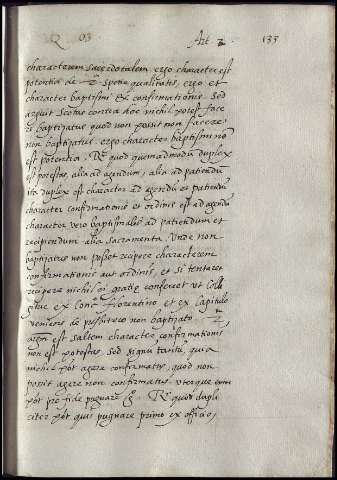 Q 63 Art 2 133
characterem sacerdotalem. ergo character est
potentia de 2ª spetie qualitatis, ergo et
character baptismi et confirmationis. Sed
arguit Scotus contra hoc nichil potest face
re baptizatus quod non possit non facere
non baptizatus. ergo character baptismi nō
est potentia. R. quod quemadmodū duplex
est potestas, alia ad agendum, alia ad patiendū
ita duplex est character ad agendū et patiendū
character confirmationis et ordinis est ad agendū
character vero baptismalis ad patiendum et
recipiendum alia sacramenta. Unde non
baptizatus non posset recipere characterem
confirmationis aut ordinis, et si tentaret
recipere nichil ei gratię conferret ut colli
gitur ex Conc. florentino et ex Capitulo
veniens de presbitero non baptizato. 2.
arg. est saltem character confirmationis
non est potestas sed signū tantū, quia
nichil pōt agere confirmatus, quod non
possit agere non confirmatus. uterque enim
pōt pro fide pugnare. R. quod dupli
citer pōt quis pugnare primo ex officio,